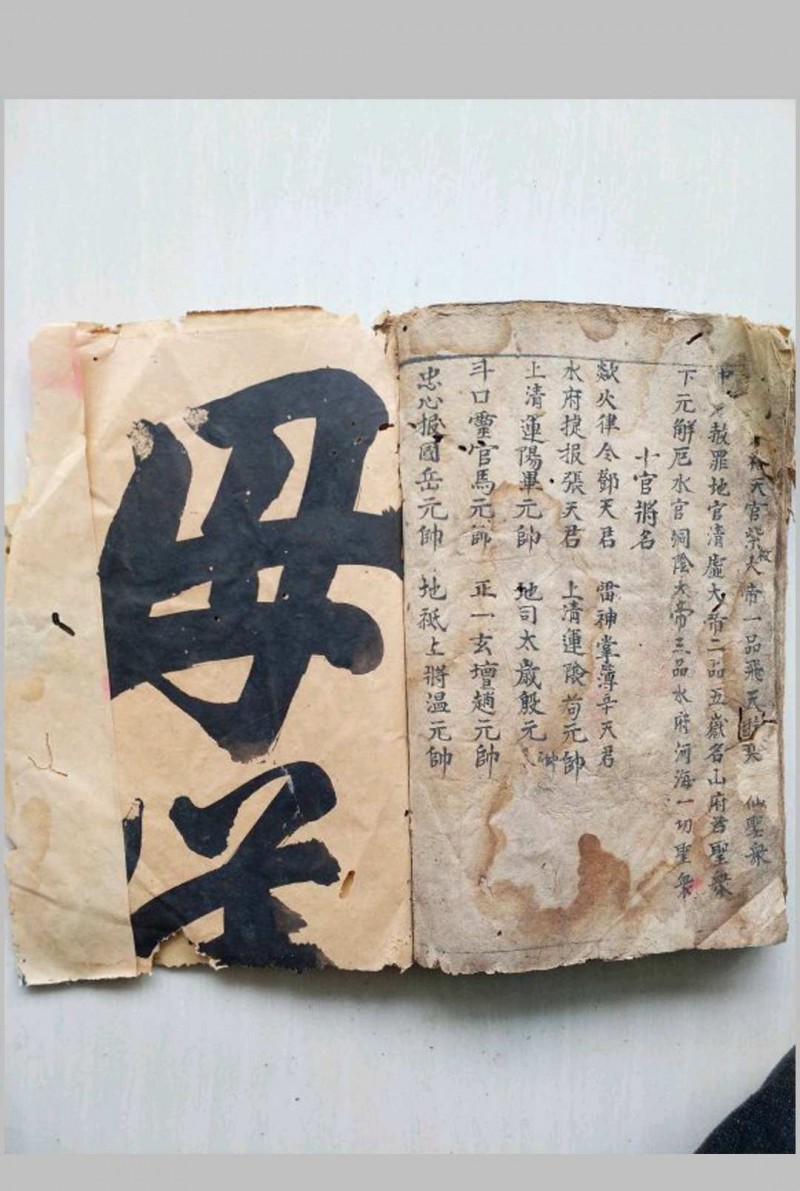 天官紫微大帝一品飛天 仙聖衆
赦罪地官清虛大帝二品五嶽名山府 聖衆
下元解厄水官洞陰大帝三品水府河海一切聖衆
十官將名
歘火律令鄧天君 雷神掌簿辛天君
水府捷报張天君 上清運陰苟元帥
上清運陽畢元帥 地司太歲殷元帥
斗口靈官馬元帥 正一玄壇趙元帥
忠心报國岳元帥 地祇上將温元帥
毋